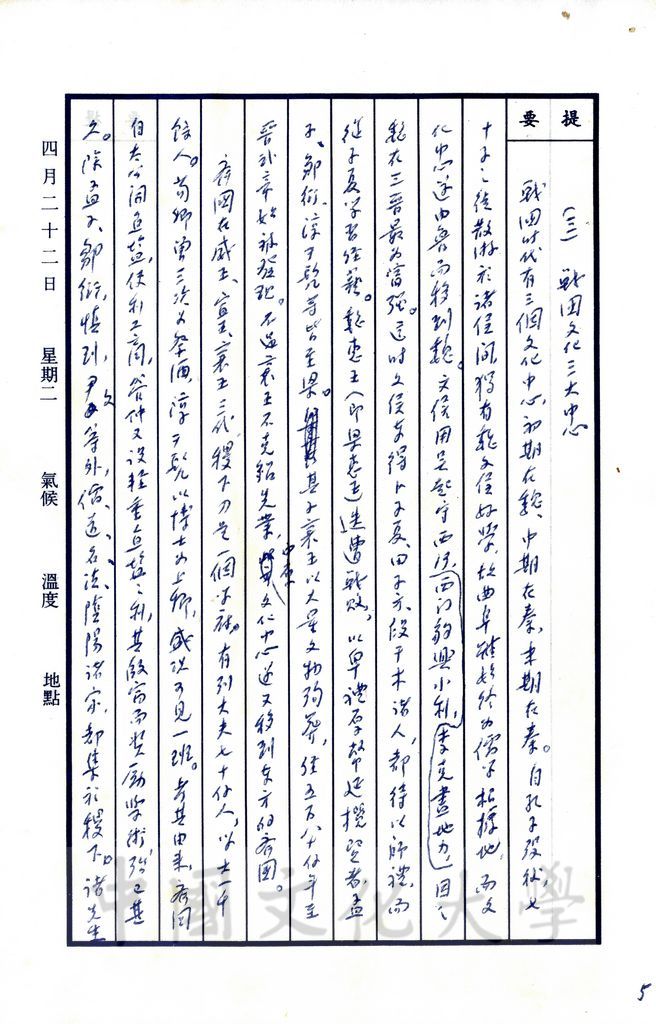 提要
(三) 戰國文化三大中心
戰國时代有三個文化中心,初期在魏、中期在秦,末期在秦。自孔子殁後,七
十子之徒散游於諸侯間,獨有魏文侯好學,故曲阜雖始終为儒家根據地,而文
化中心遂由魯而移到魏。文侯用吳起守西河,西门豹興水利,李克盡地力,因之
魏在三晋最为富强。這时文侯幸得卜子夏、田子方、段干木諸人,都待以師禮,而
從子夏学習經藝。魏惠王(即梁惠王)迭遭戰败,以卑禮厚幣延攬賢者,孟
子、鄒衍、淳于髡等皆至梁。其子襄王以大量文物殉葬,經五百八十餘年至
晋武帝始被發現。不過襄王不克紹先業,中原文化中心遂又移到东方的齊國。
齊國在威王、宣王、襄王三代,稷下乃是一個学府,有列大夫七十餘人,以士一千
餘人。荀卿曾三次为祭酒,淳于髡以博士为上卿,盛况可見一斑。考其由来,齊国
自太公開魚鹽,使利工商,管仲又設輕重魚鹽之利,其殷富而獎勵學術,确已甚
久。除孟子、鄒衍、慎到、尹文等外,儒、道、名、法、陰陽諸家,都集於稷下。諸先生
四月二十二日 星期二 氣候 溫度 地點
5
中國文化大學